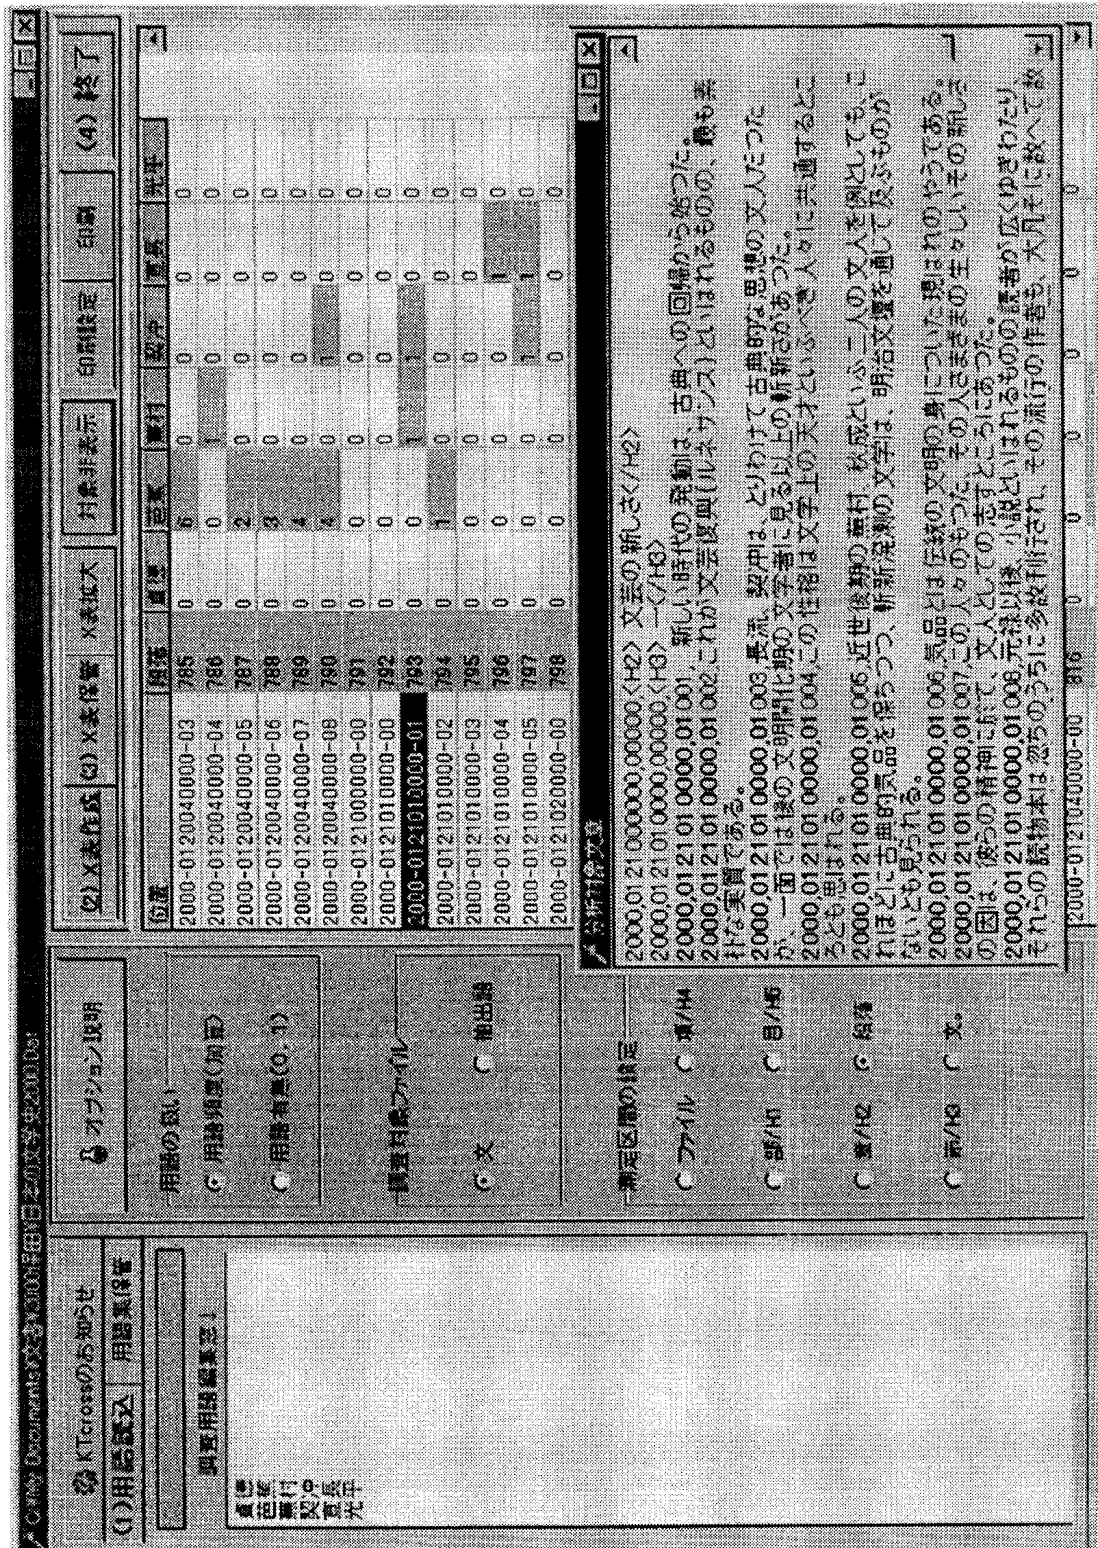 KTcrossのお知らせ
(1)用語読込 用語集保管
調査用語編集窓↓
貞徳
芭蕉
蕪村
契沖
宣長
光平
オプション説明
用語の扱い
用語頻度(加算)
用語有無(0, 1)
調査対象ファイル
文 抽出語
測定区間の設定
ファイル 項/H4
部/H1 目/H5
章/H2 段落
節/H3 文。
(2) X表作成 (3) X表保管 X表拡大 対象非表示 印刷設定 印刷 (4) 終了
位置 段落 貞徳 芭蕉 蕪村 契沖 宣長 光平
2000-0120040000-03 785 0 6 0 0 0 0
2000-0120040000-04 786 0 0 1 0 0 0
2000-0120040000-05 787 0 2 0 0 0 0
2000-0120040000-06 788 0 3 0 0 0 0
2000-0120040000-07 789 0 4 0 0 0 0
2000-0120040000-08 790 0 4 0 1 0 0
2000-0121000000-00 791 0 0 0 0 0 0
2000-0121010000-00 792 0 0 0 0 0 0
2000-0121010000-01 793 0 0 1 1 0 0
2000-0121010000-02 794 0 1 0 0 0 0
2000-0121010000-03 795 0 0 0 0 0 0
2000-0121010000-04 796 0 0 0 0 1 0
2000-0121010000-05 797 0 0 0 1 1 0
2000-0121020000-00 798 0 0 0 0 0 0
分析対象文章
2000,0121000000,00000,<H2> 文芸の新しさ</H2>
2000,0121010000,00000,<H3> 一</H3>
2000,0121010000,01001, 新しい時代の発動は、古典への回帰から始つた。
2000,0121010000,01002,これが文芸復興{ルネサンス}といはれるものの、最も素
朴な実質である。
2000,0121010000,01003,長流、契沖は、とりわけて古典的な思想の文人だつた
が、一面では後の文明開化期の文学者に見る以上の斬新さがあつた。
2000,0121010000,01004,この性格は文学上の天才といふべき人々に共通するとこ
ろとも思はれる。
2000,0121010000,01005,近世後期の蕪村、秋成といふ二人の文人を例としても、こ
れほどに古典的気品を保ちつつ、斬新溌溂の文学は、明治文壇を通して及ぶものが
ないとも見られる。
2000,0121010000,01006,気品とは伝統の文明の身についた現はれのやうである。
2000,0121010000,01007,この人々のもつた、その人さまざまの生々しいその新しさ
の因は、彼らの精神に於て、文人としての志すところにあつた。
2000,0121010000,01008,元禄以後、小説といはれるものの読者が広くゆきわたり、
それらの読物本は忽ちのうちに多数刊行され、その流行の作者も、大凡そに数へて故
2000-0121040000-00 816 0 0 0 0 0